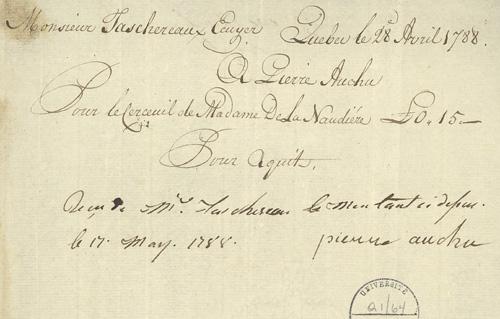 Monsieur Taschereaux Ecuyer Quebec le 28 Avril 1788.
A Pierre Auchu
Pour le Cerceuil de Madame De La Naudiére £0. 15.—
Pour Aquit.
Reçu de Mr. Taschereau le montant ci depu.
le 17. May. 1788. pierre auchu
UNIVERSITÉ
Q1/64